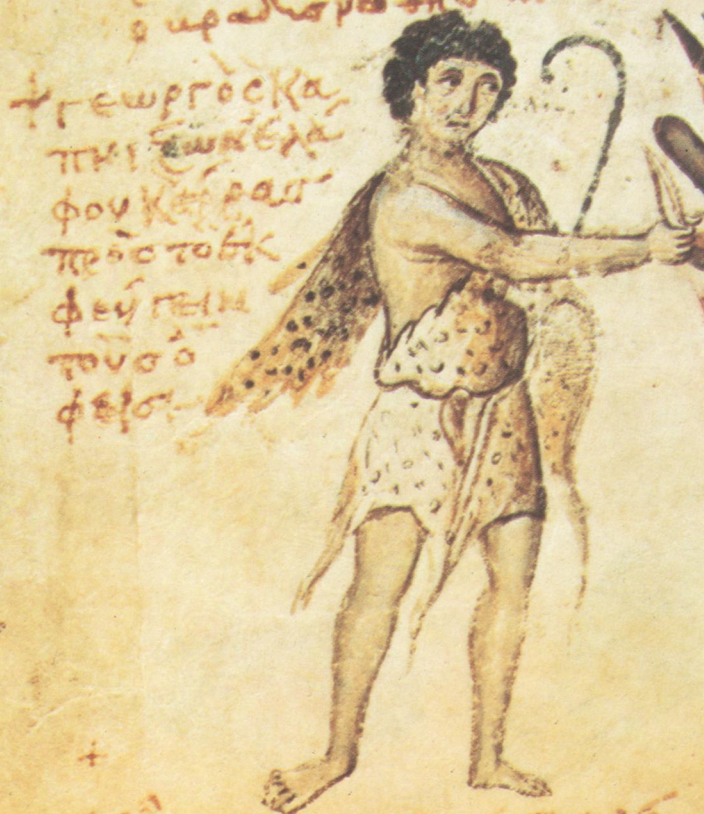 + γεωργὸς κα
πνίζων ἐλά
φου κέρας
πρὸς τὸ ἐκ
φεύγειν
τοὺς ὄ
φεις